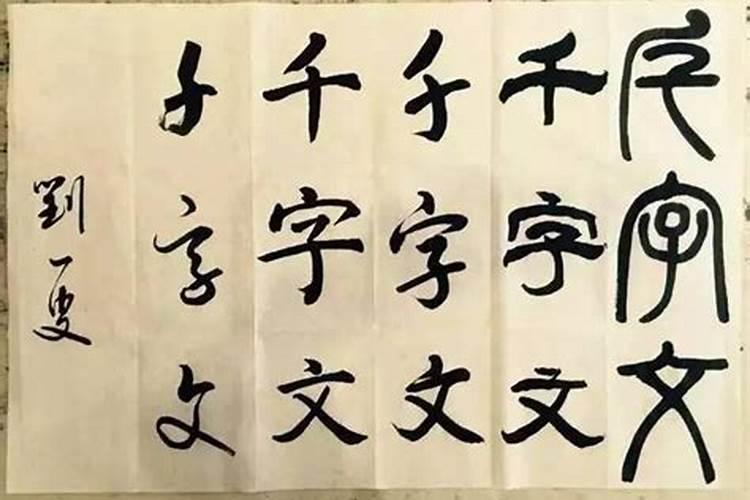 千字文
千字文
千字文
千字文
千字文
劉一叟